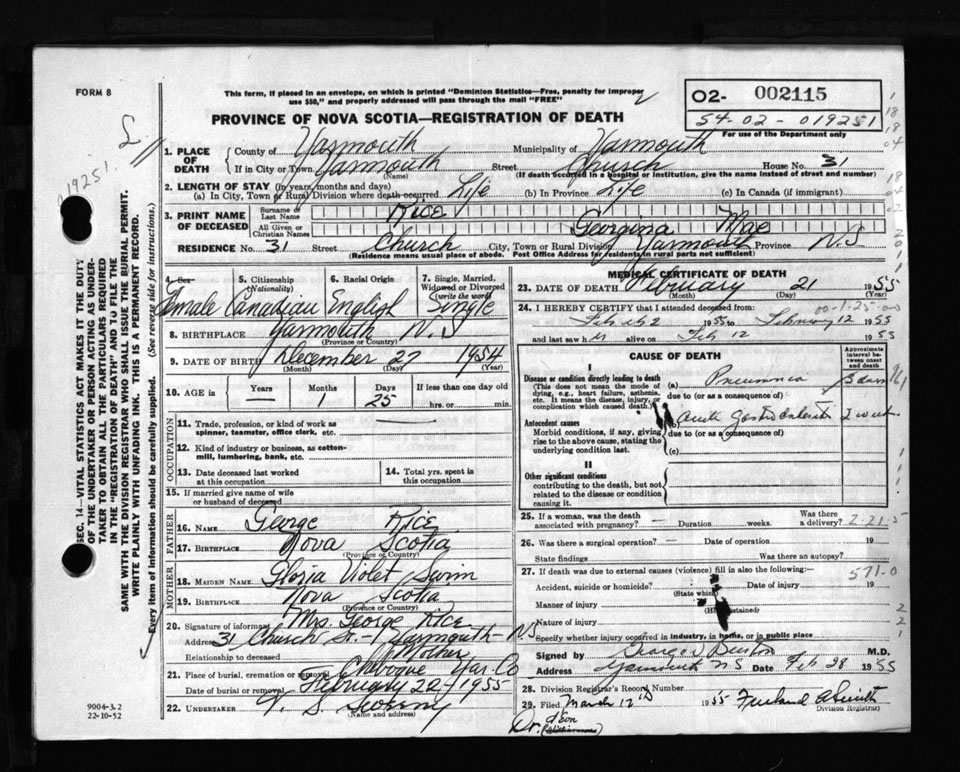 FORM 8
This form, if placed in an envelope, on which is printed "Dominion Statistics—Free, penalty for improper
use $50," and properly addressed will pass through the mail "FREE"
PROVINCE OF NOVA SCOTIA—REGISTRATION OF DEATH
02- 002115
54-02-019251
For use of the Department only
19251
1. PLACE OF DEATH
County of Yarmouth Municipality of Yarmouth
If in City or Town Yarmouth Street Church House No. 31
(Name) (If death occurred in a hospital or institution, give the name instead of street and number)
2. LENGTH OF STAY (in years, months and days)
(a) In City, Town or Rural Division where death occurred Life (b) In Province Life (c) In Canada (if immigrant)
3. PRINT NAME OF DECEASED
Surname or Last Name Rice
All Given or Christian Names Georgina Mae
RESIDENCE No. 31 Street Church City, Town or Rural Division Yarmouth Province N.S
(Residence means usual place of abode. Post Office Address for residents in rural parts not sufficient)
4. Sex Female
5. Citizenship (Nationality) Canadian
6. Racial Origin English
7. Single, Married, Widowed or Divorced (write the word) Single
8. BIRTHPLACE Yarmouth N.S
(Province or Country)
9. DATE OF BIRTH December 27 1954
(Month) (Day) (Year)
10. AGE in Years — Months 1 Days 25 If less than one day
hrs. or min.
OCCUPATION
11. Trade, profession, or kind of work as spinner, teamster, office clerk, etc.
12. Kind of industry or business, as cotton-mill, lumbering, bank, etc.
13. Date deceased last worked at this occupation
14. Total yrs. spent in this occupation
15. If married give name of wife or husband of deceased
FATHER
16. NAME George Rice
17. BIRTHPLACE Nova Scotia
(Province or Country)
MOTHER
18. MAIDEN NAME Gloria Violet Swim
19. BIRTHPLACE Nova Scotia
(Province or Country)
20. Signature of informant Mrs. George Rice
Address 31 Church St. - Yarmouth - N.S
Relationship to deceased Mother
21. Place of burial, cremation or removal Chebogue Yar. Co
Date of burial or removal February 22, 1955
22. UNDERTAKER V. S. Sweeny
(Name and address)
MEDICAL CERTIFICATE OF DEATH
23. DATE OF DEATH February 21 1955
(Month) (Day) (Year)
24. I HEREBY CERTIFY that I attended deceased from:
Feb 2 1955 to February 12 1955
and last saw her alive on Feb 12
CAUSE OF DEATH
Approximate interval between onset and death
I
Disease or condition directly leading to death
(This does not mean the mode of dying, e.g., heart failure, asthenia, etc. It means the disease, injury, or complication which caused death.)
(a) Pneumonia 3 days
due to (or as a consequence of)
Antecedent causes
Morbid conditions, if any, giving rise to the above cause, stating the underlying condition last.
Acute Gastro Enteritis 2 weeks
due to (or as a consequence of)
(c)
II
Other significant conditions
contributing to the death, but not related to the disease or condition causing it.
25. If a woman, was the death associated with pregnancy? — Duration weeks. Was there a delivery?
2-21-5
26. Was there a surgical operation? — Date of operation 19
State findings Was there an autopsy?
27. If death was due to external causes (violence) fill in also the following:—
571.0
Accident, suicide or homicide? Date of injury 19
(State which)
Manner of injury
(How sustained)
Nature of injury
Specify whether injury occurred in industry, in home, or in public place
Signed by George V Burton M.D.
Address Yarmouth N.S Date Feb 28 1955
28. Division Registrar's Record Number
29. Filed March 12th 1955 Freeland A Smith
Division Registrar
Dr.
9004-3.2
22-10-52
SEC. 14—VITAL STATISTICS ACT MAKES IT THE DUTY
OF THE UNDERTAKER OR PERSON ACTING AS UNDER-
TAKER TO OBTAIN ALL THE PARTICULARS REQUIRED
IN THE "REGISTRATION OF DEATH" AND TO FILE THE
SAME WITH THE DIVISION REGISTRAR WHO SHALL ISSUE THE BURIAL PERMIT.
WRITE PLAINLY WITH UNFADING INK. THIS IS A PERMANENT RECORD.
Every item of information should be carefully supplied. (See reverse side for instructions.)